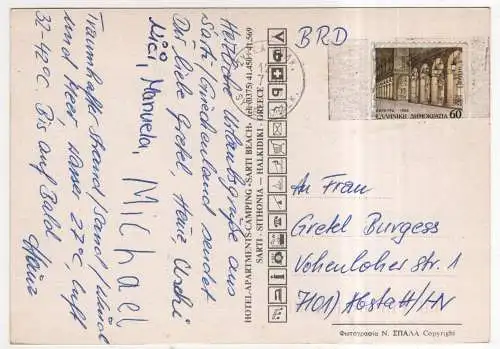 Herzliche Urlaubsgrüße aus
Sarti/Griechenland sendet
Dir liebe Gretel, Heinz Uschi
Nici, Manuela, Michael
Traumhafter Strand/Sand/Wind
und Meer, Wasser 27°C Luft
32-42°C. Bis auf Bald
Heinz
HOTEL-APARTMENTS-CAMPING «SARTI BEACH» tel. (0375) 41.450 - 41.569
SARTI - SITHONIA — HALKIDIKI — GREECE
BRD
ΕΛΛΗΝΙΚΗ ΔΗΜΟΚΡΑΤΙΑ 60
An Frau
Gretel Burgess
Vohenloher Str. 1
7101/Abstatt/HN
Φωτογραφία Ν. ΣΠΑΛΑ Copyright